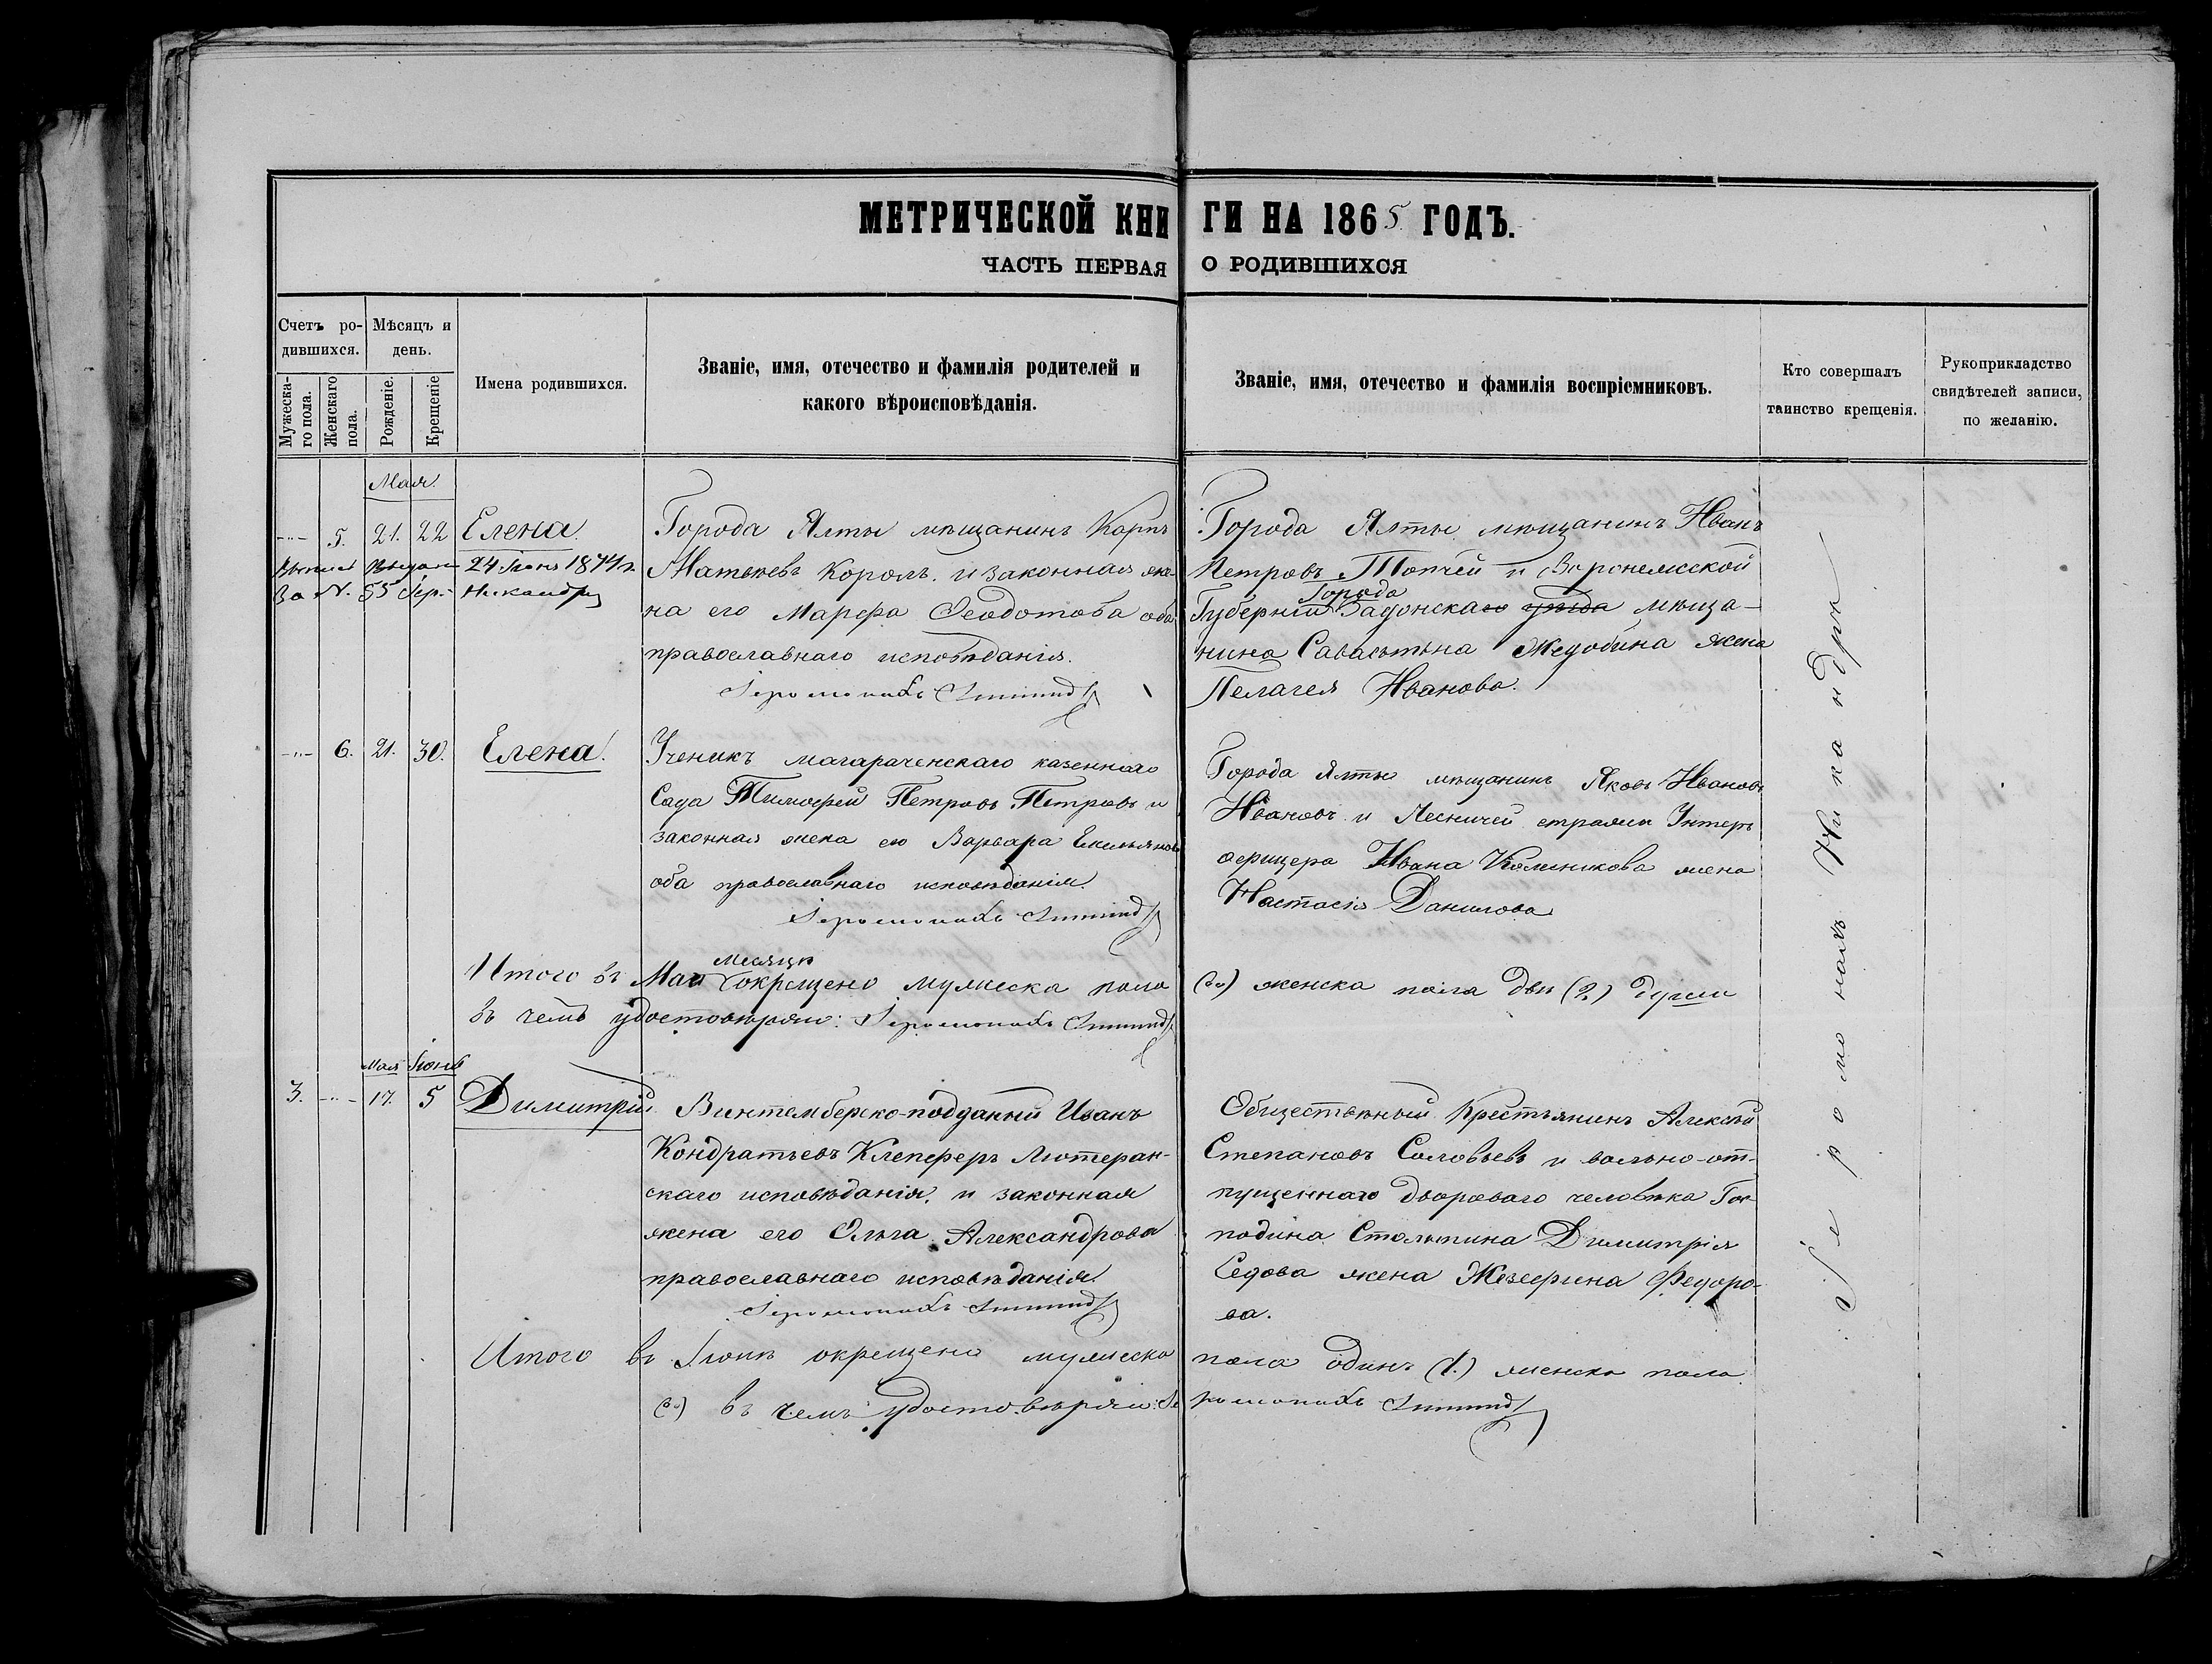 МЕТРИЧЕСКОЙ КНИГИ НА 1865 ГОДЪ.
ЧАСТЬ ПЕРВАЯ О РОДИВШИХСЯ
Счетъ ро-
дившихся.
Мужеска-
го пола.
Женскаго
пола.
Мѣсяцъ и
день.
Рожденіе.
Крещеніе
Имена родившихся.
Званіе, имя, отечество и фамилія родителей и
какого вѣроисповѣданія.
Званіе, имя, отечество и фамилія воспріемниковъ.
Кто совершалъ
таинство крещенія.
Рукоприкладство
свидѣтелей записи,
по желанію.
Мая
-"- 5. 21. 22 Елена
24 Іюня 1874 г.
За N. 55 Іер. Никандръ
Города Ялты мѣщанинъ Карпъ
Матвѣевъ Король и законная же-
на его Марѳа Ѳеодотова оба
православнаго исповѣданія.
Іеромонахъ
Города Ялты мѣщанинъ Иванъ
Петровъ Топчей и Воронежской
Губерніи Города Задонска уѣзда мѣща-
нина Жедобина жена
Пелагея Иванова.
-"- 6. 21. 30. Елена.
Ученикъ магарачскаго казеннаго
Сада Тимоѳей Петровъ Петровъ и
законная жена его Варвара Емельянова
оба православнаго исповѣданія.
Іеромонахъ
Города Ялты мѣщанинъ Яковъ Ивановъ
Ивановъ и Лесничей стражи Унтеръ
офицера Ивана жена
Настасія Данилова
Итого въ Маѣ месяцѣ окрещено мужеска пола
женска пола двѣ (2) души
въ чемъ удостовѣряю: Іеромонахъ
Мая Іюнь
3. -"- 17. 5 Димитрій
Винтемберско-подданный Иванъ
Кондратьевъ Клепферъ Лютеран-
скаго исповѣданія, и законная
жена его Ольга Александрова
православнаго исповѣданія.
Іеромонахъ
Общественный Крестьянинъ Алексѣй
Степановъ Соловьевъ и вольно-от-
пущеннаго двороваго человѣка Гос-
подина Столыпина Димитрія
Седова жена Жозефина Федоро-
ва.
Итого въ Іюнѣ окрещено мужеска пола одинъ (1.) женска пола
въ чемъ удостовѣряю: Іеромонахъ
Іеромонахъ Никандръ